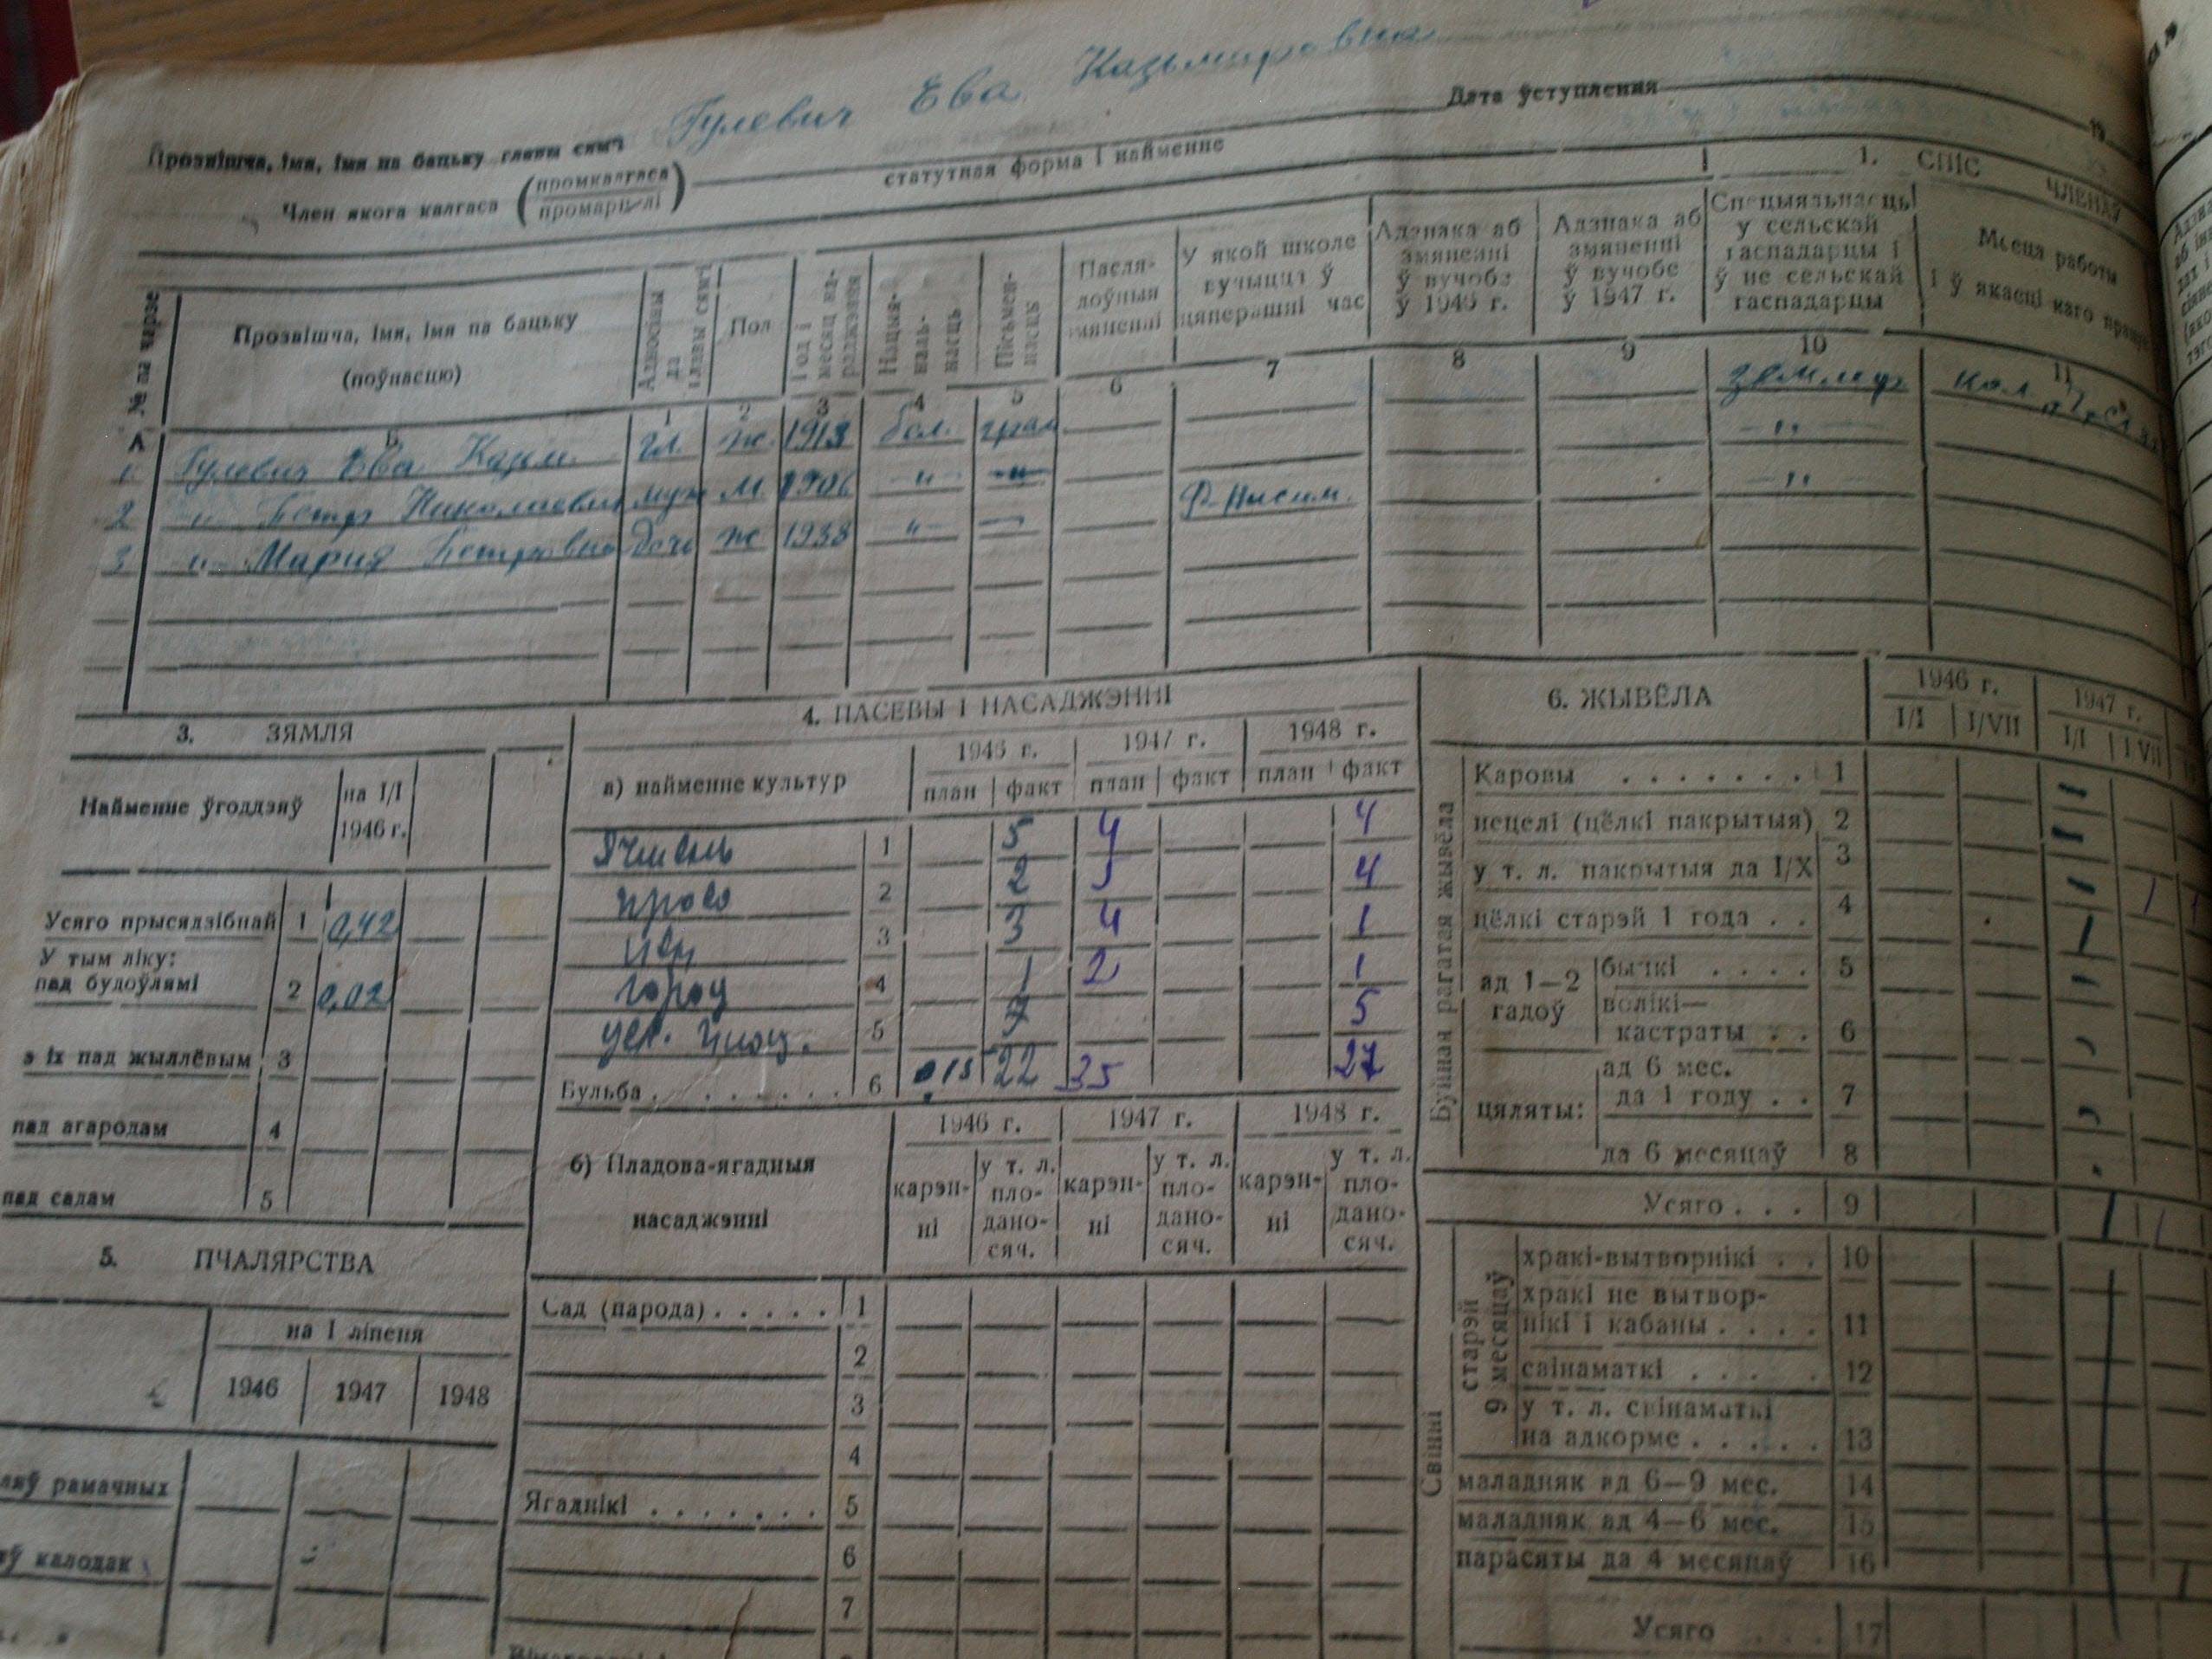 Гулевич Ева Казьмировна
Прозвішча, імя, імя па бацьку главы сям'і
Дата ўступлення 19
Член якога калгаса (промкалгаса / промарцелі)
статутная форма і найменне
1. СПІС ЧЛЕНАЎ
№ па чарзе
Прозвішча, імя, імя па бацьку (поўнасцю)
Адносіны да главы сям'і
Пол
Год і месяц нараджэння
Нацыянальнасць
Пісьменнасць
Пасляслоўныя змяненні
У якой школе вучыцца ў цяперашні час
Адзнака аб змяненні ў вучобе ў 1946 г.
Адзнака аб змяненні ў вучобе ў 1947 г.
Спецыяльнасць у сельскай гаспадарцы і ў не сельскай гаспадарцы
Месца работы і ў якасці каго працуе
А Б 1 2 3 4 5 6 7 8 9 10 11
1 Гулевич Ева Казьм. гл. ж 1913 бел. грам. кол.
2 " Петр Николаевич муж М 1906 " " "
3 " Мария Петровна дочь ж 1938 " — "
3. ЗЯМЛЯ
Найменне ўгоддзяў
на I/I 1946 г.
Усяго прысядзібнай 1 0,42
У тым ліку:
пад будоўлямі 2 0,02
з іх пад жыллёвым 3
пад агародам 4
пад садам 5
4. ПАСЕВЫ І НАСАДЖЭННІ
а) найменне культур
1946 г. 1947 г. 1948 г.
план факт план факт план факт
Ячмень 1 5 4 4
просо 2 2 5 4
лен 3 3 4 1
город 4 1 2 1
5 7 5
Бульба . . . . . . . 6 0,15 22 35 27
б) Пладова-ягадныя насаджэнні
1946 г. 1947 г. 1948 г.
карэнні у т. л. пладаносяч. карэнні у т. л. пладаносяч. карэнні у т. л. пладаносяч.
Сад (парода) . . . . . 1
2
3
4
Ягаднікі . . . . . . . 5
6
7
5. ПЧАЛЯРСТВА
на I ліпеня
1946 1947 1948
рамачных
калодак
6. ЖЫВЁЛА
1946 г. 1947 г.
I/I I/VII I/I I/VII
Буйная рагатая жывёла
Каровы . . . . . . . 1 —
нецелі (цёлкі пакрытыя) 2 —
у т. л. пакрытыя да I/X 3 —
цёлкі старэй 1 года . . 4 1
ад 1—2 гадоў
бычкі . . . . 5 —
волікі—кастраты . . 6
цяляты:
ад 6 мес. да 1 году . . 7
да 6 месяцаў 8
Усяго . . . 9 1 1
Свінні
старэй 9 месяцаў
хракі-вытворнікі . . 10
хракі не вытворнікі і кабаны . . . . 11
свінаматкі . . . . 12
у т. л. свінаматкі на адкорме . . . . . 13
маладняк ад 6—9 мес. 14
маладняк ад 4—6 мес. 15
парасяты да 4 месяцаў 16
Усяго . . . 17